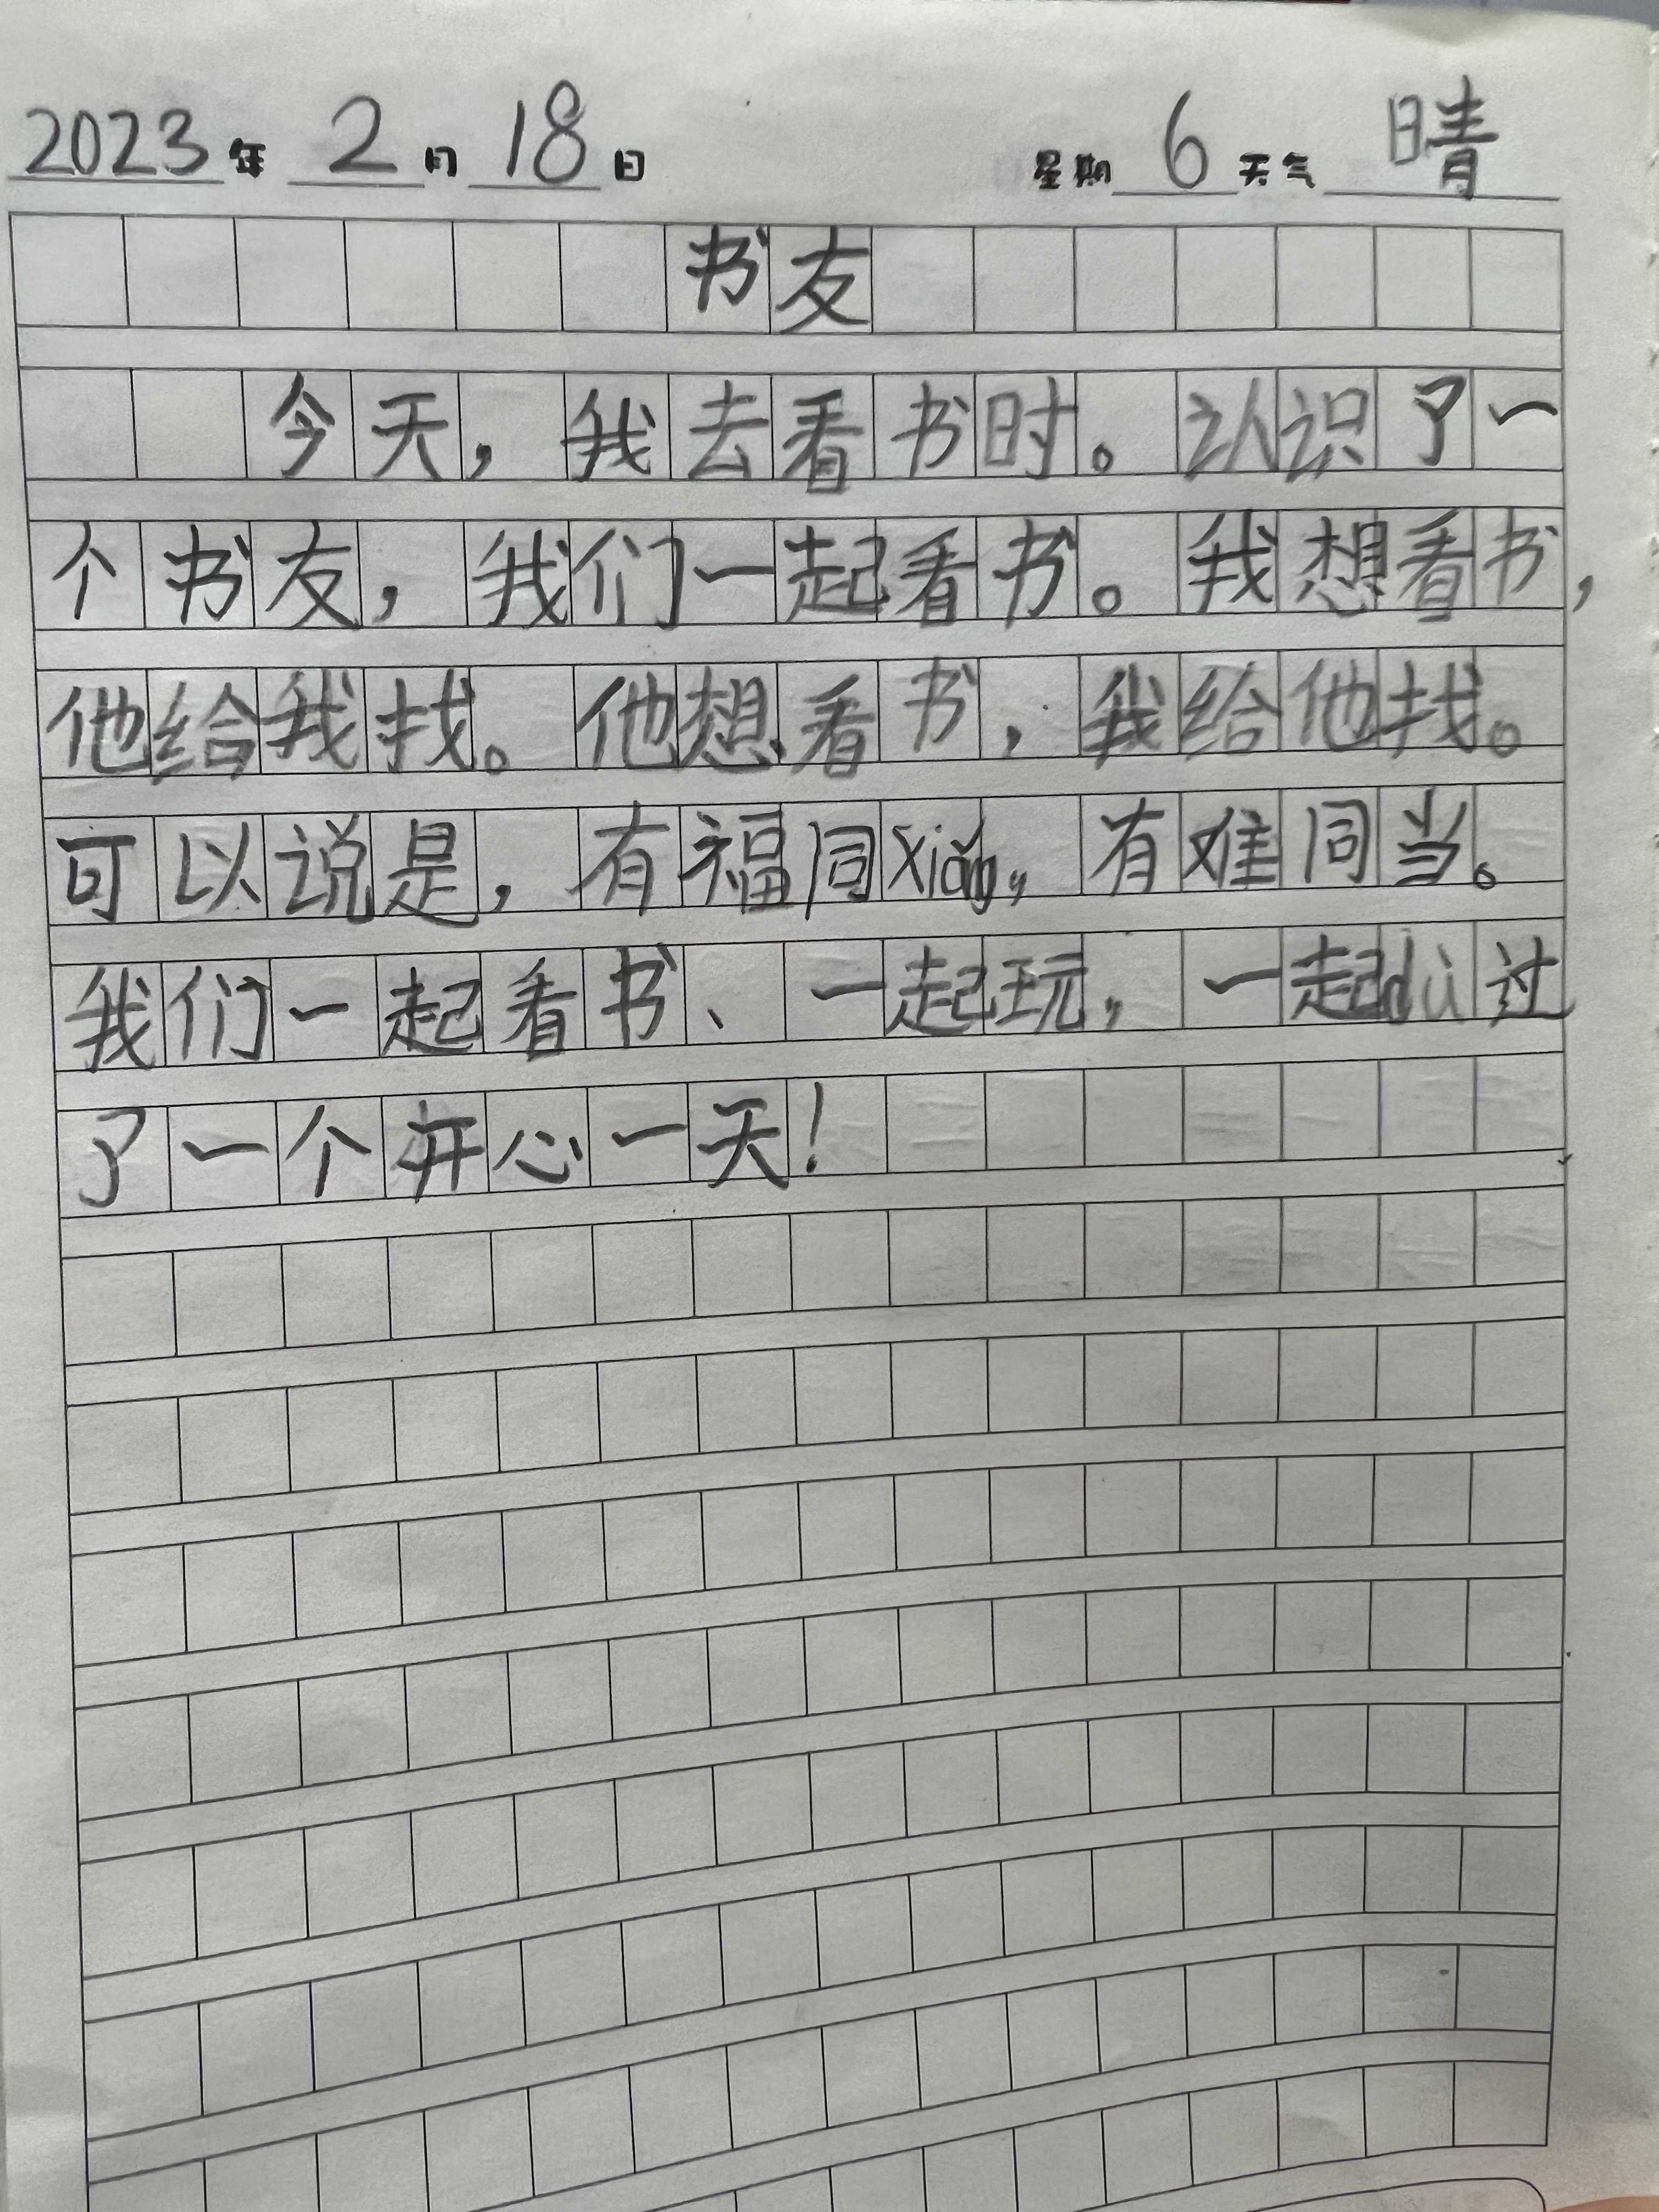 2023年 2月 18日 星期 6 天气 晴
书友
今天，我去看书时。认识了一
个书友，我们一起看书。我想看书，
他给我找。他想看书，我给他找。
可以说是，有福同xiǎng，有难同当。
我们一起看书、一起玩，一起dù过
了一个开心一天！